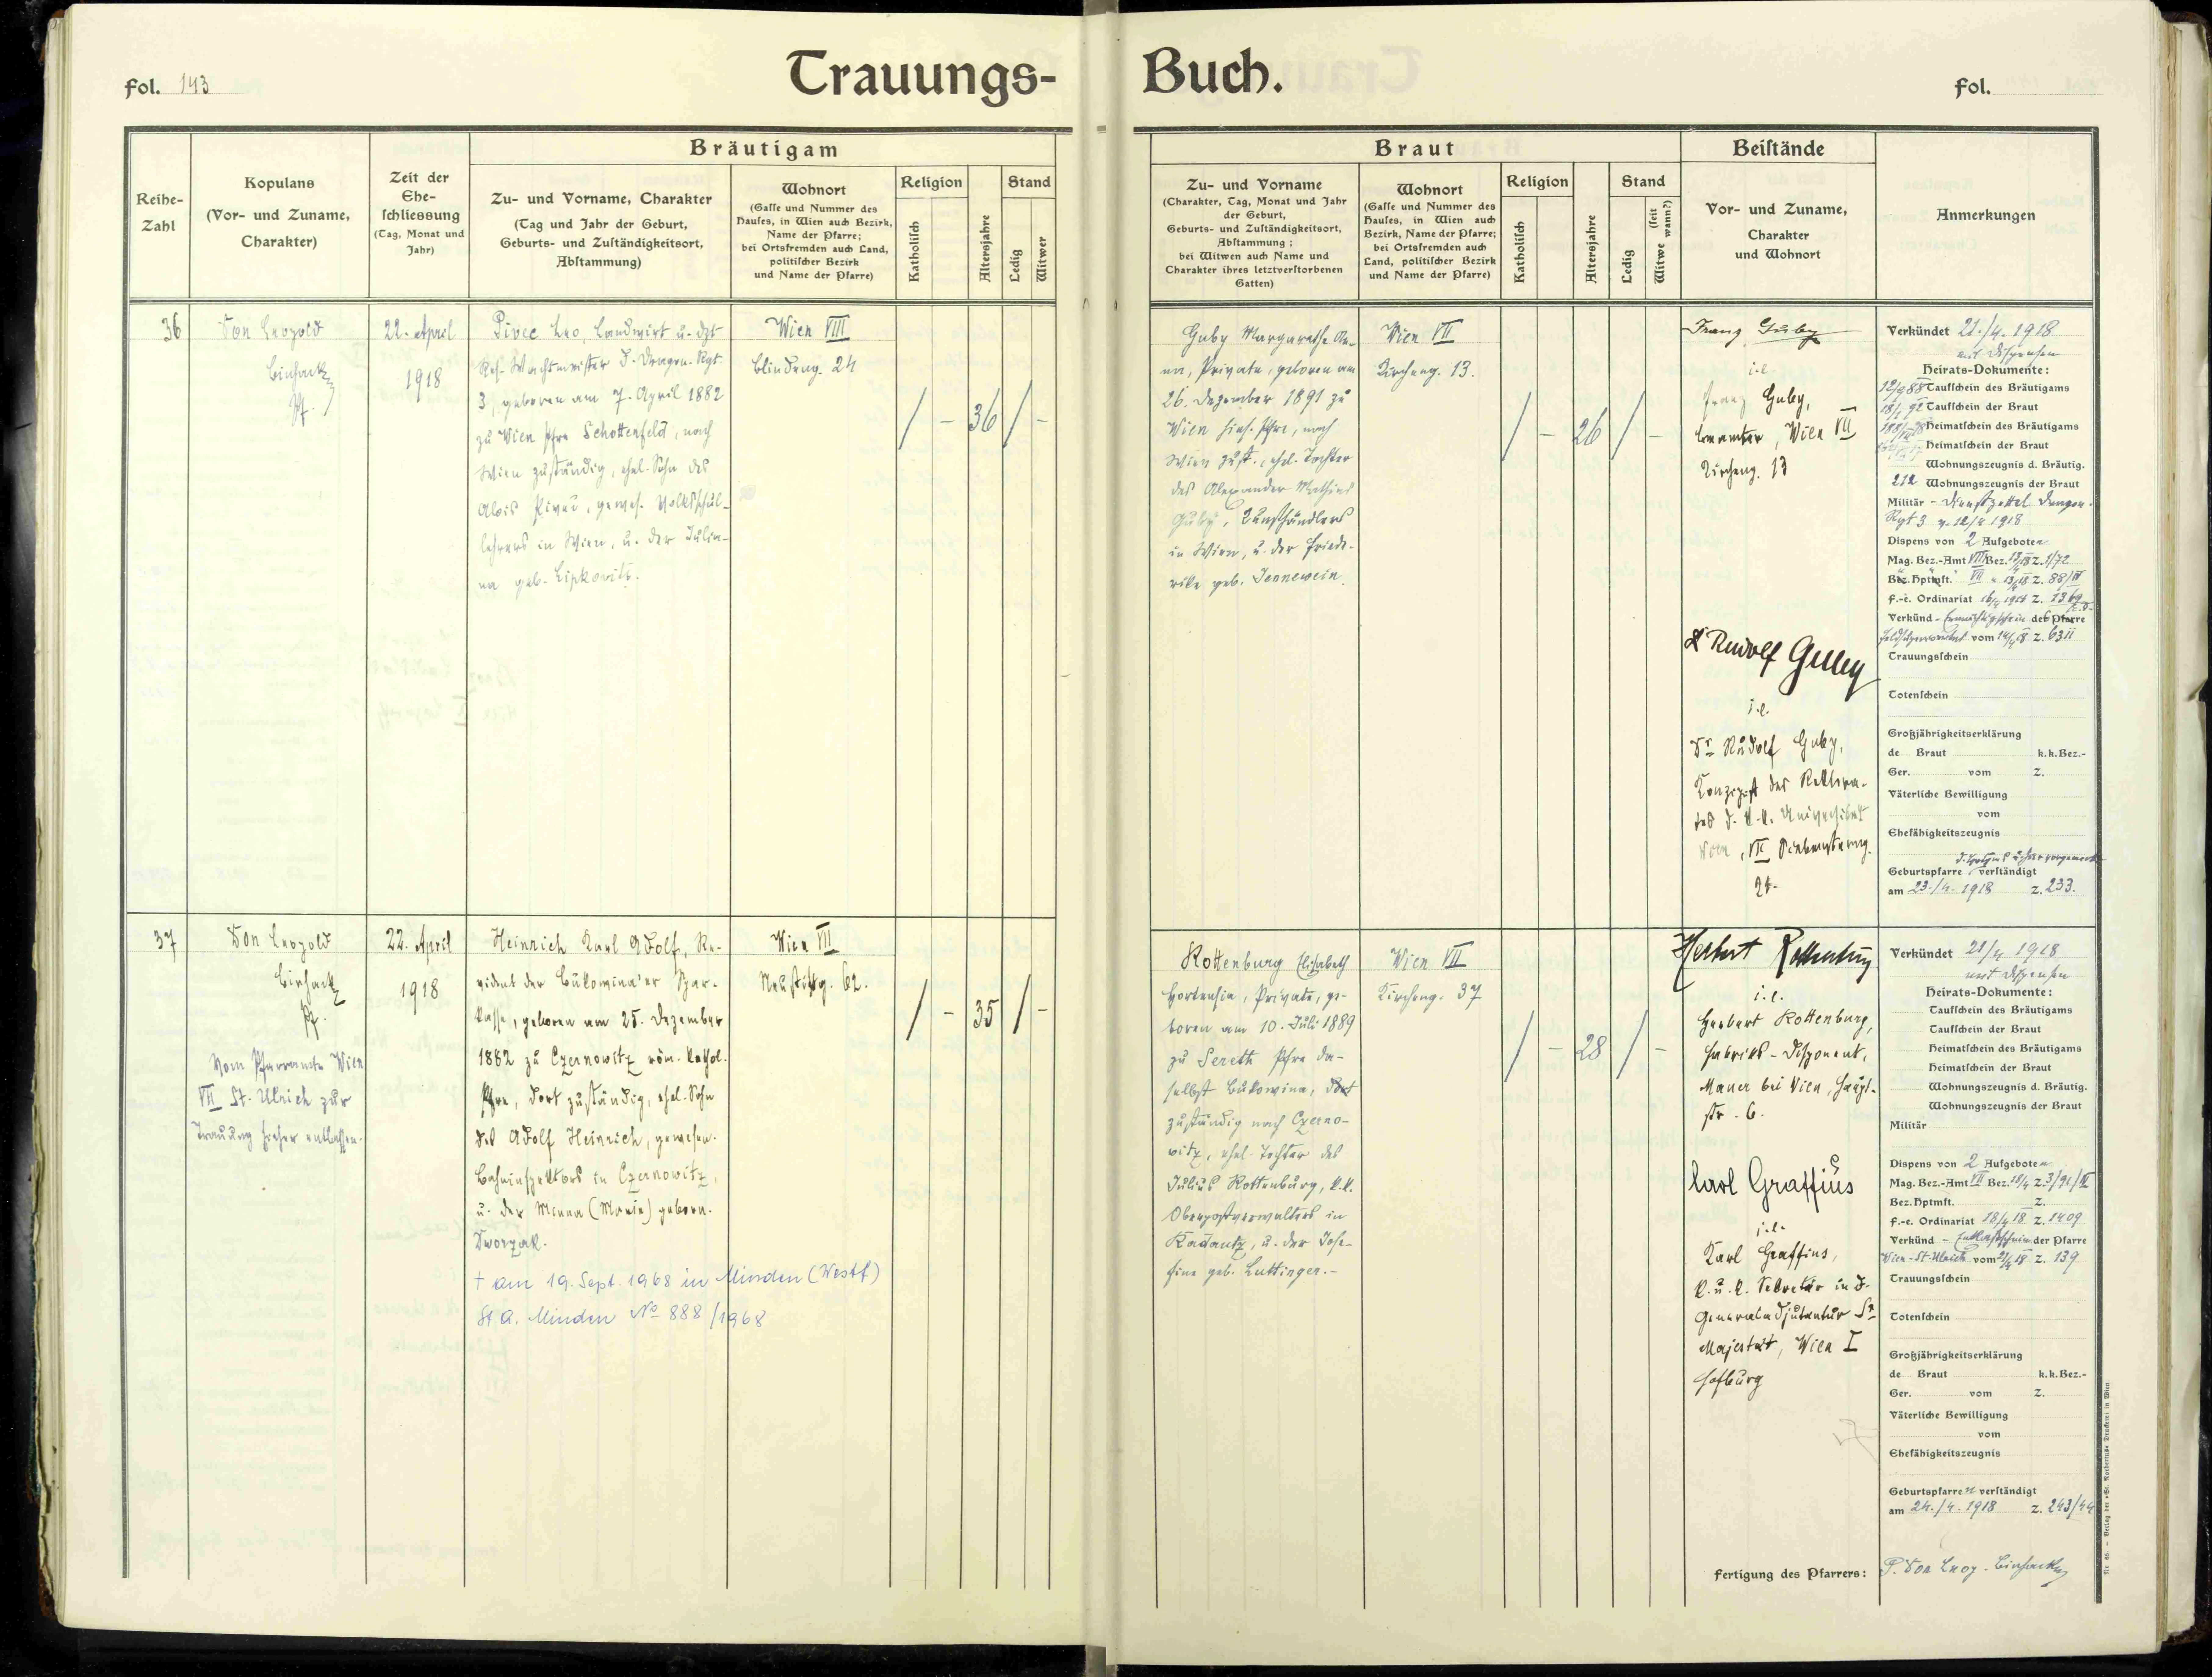 Trauungs-Buch.
fol. 143
fol.
Reihe-
Zahl
Kopulans
(Vor- und Zuname,
Charakter)
Zeit der
Ehe-
schliessung
(Tag, Monat und
Jahr)
Bräutigam
Zu- und Vorname, Charakter
(Tag und Jahr der Geburt,
Geburts- und Zuständigkeitsort,
Abstammung)
Wohnort
(Gasse und Nummer des
Hauses, in Wien auch Bezirk,
Name der Pfarre;
bei Ortsfremden auch Land,
politischer Bezirk
und Name der Pfarre)
Religion
Katholisch
Altersjahre
Stand
Ledig
Witwer
Braut
Zu- und Vorname
(Charakter, Tag, Monat und Jahr
der Geburt,
Geburts- und Zuständigkeitsort,
Abstammung;
bei Witwen auch Name und
Charakter ihres letztverstorbenen
Gatten)
Wohnort
(Gasse und Nummer des
Hauses, in Wien auch
Bezirk, Name der Pfarre;
bei Ortsfremden auch
Land, politischer Bezirk
und Name der Pfarre)
Religion
Katholisch
Altersjahre
Stand
Ledig
Witwe (seit
wann?)
Beistände
Vor- und Zuname,
Charakter
und Wohnort
Anmerkungen
36
Don Leopold
Pf.
22. April
1918
Pivec Leo, Landwirt u. dzt
Res. Wachtmeister d. Dragon. Rgt.
3, geboren am 7. April 1882
zu Wien Pfre Schottenfeld, nach
Wien zuständig, ehel. Sohn des
Alois Pivec, gewes. Volksschul-
lehrers in Wien, u. der Julia-
na geb. Lipkovitz.
Wien VIII
Blindeng. 24
/ - 36 / -
Guby Margarethe An-
na, Private, geboren am
26. Dezember 1891 zu
Wien hies. Pfre, nach
Wien zust., ehel. Tochter
des Alexander Mathias
Guby, Kunsthändlers
in Wien, u. der Friede-
rike geb. Jennewein.
Wien VII
Kircheng. 13.
/ - 26 / -
Franz Guby
i.e.
Franz Guby,
Beamter, Wien VII
Kircheng. 13
Dr Rudolf Guby
i.e.
Dr Rudolf Guby,
Konzipist des Rektora-
tes d. k.k. Universität
Wien, VII Siebensterng.
24.
Verkündet 21./4. 1918
mit Dispensen
Heirats-Dokumente:
Taufschein des Bräutigams
Taufschein der Braut
Heimatschein des Bräutigams
Heimatschein der Braut
Wohnungszeugnis d. Bräutig.
212 Wohnungszeugnis der Braut
Militär - Dienstzettel Dragon.
Rgt 3 v. 12/4 1918
Dispens von 2 Aufgeboten
Mag. Bez.-Amt VIII Bez. 13/4 18 z. 1/72
Bez. Hptmft. VII " 13/4 18 z. 88/IV
f.-e. Ordinariat 16/4 1918 z. 1369
Verkünd - Ermächtigschein des Pfarre
Feldsuperiorates vom 14/4 18 z. 6311
Trauungsschein
Totenschein
Großjährigkeitserklärung
de Braut k.k. Bez.-
Ger. vom z.
Väterliche Bewilligung
vom
Ehefähigkeitszeugnis
Geburtspfarre verständigt
am 23./4. 1918 z. 233.
37
Don Leopold
Pf.
Vom Pfarramte Wien
VII St. Ulrich zur
Trauung hieher entlassen.
22. April
1918
Heinrich Karl Adolf, Re-
vident der Bukowina'er Spar-
kasse, geboren am 25. Dezember
1882 zu Czernowitz röm. kathol.
Pfre, dort zuständig, ehel. Sohn
des Adolf Heinrich, gewesen.
Bahninspektors in Czernowitz,
u. der Minna (Maria) geborn.
Dworzak.
† am 19. Sept. 1968 in Minden (Westf)
St A. Minden No 888/1968
Wien VII
Neustiftg. 62.
/ - 35 / -
Rottenburg Elisabeth
Hortensia, Private, ge-
boren am 10. Juli 1889
zu Sereth Pfre da-
selbst Bukowina, dort
zuständig nach Czerno-
witz, ehel. Tochter des
Julius Rottenburg, k.k.
Oberpostverwalters in
Radautz, u. der Jose-
fine geb. Luttinger.-
Wien VII
Kircheng. 37
/ - 28 / -
Herbert Rottenburg
i.e.
Herbert Rottenburg,
Fabriks-Disponent,
Mauer bei Wien, Haupt-
str. 6.
Karl Graffius
i.e.
Karl Graffius,
k.u.k. Sekretär in d.
Generaladjutantur Sr
Majestät, Wien I
Hofburg
Verkündet 21/4 1918
mit Dispensen
Heirats-Dokumente:
Taufschein des Bräutigams
Taufschein der Braut
Heimatschein des Bräutigams
Heimatschein der Braut
Wohnungszeugnis d. Bräutig.
Wohnungszeugnis der Braut
Militär
Dispens von 2 Aufgeboten
Mag. Bez.-Amt VII Bez. 18/4 z. 3/91/IV
Bez. Hptmft. z.
f.-e. Ordinariat 18/4 18 z. 1409
Verkünd - Entlaßschein der Pfarre
Wien-St. Ulrich vom 21/4 18 z. 139
Trauungsschein
Totenschein
Großjährigkeitserklärung
de Braut k.k. Bez.-
Ger. vom z.
Väterliche Bewilligung
vom
Ehefähigkeitszeugnis
Geburtspfarren verständigt
am 24./4. 1918 z. 243/44
Fertigung des Pfarrers: P. Don Leop.